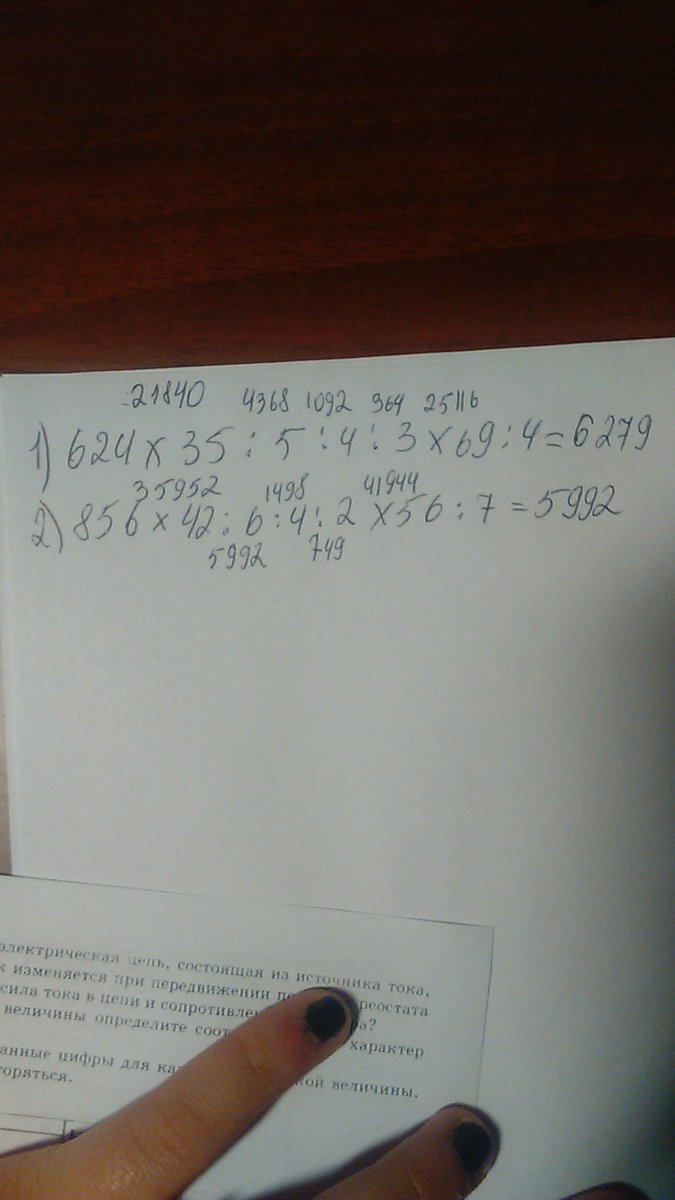 21840 4368 1092 364 25116
1) 624 x 35 : 5 : 4 : 3 x 69 : 4 = 6279
35952 1498 41944
2) 856 x 42 : 6 : 4 : 2 x 56 : 7 = 5992
5992 749
электрическая цепь, состоящая из источника тока,
к изменяется при передвижении реостата
сила тока в цепи и сопротивле ра?
величины определите соот характер
анные цифры для ка кой величины.
торяться.